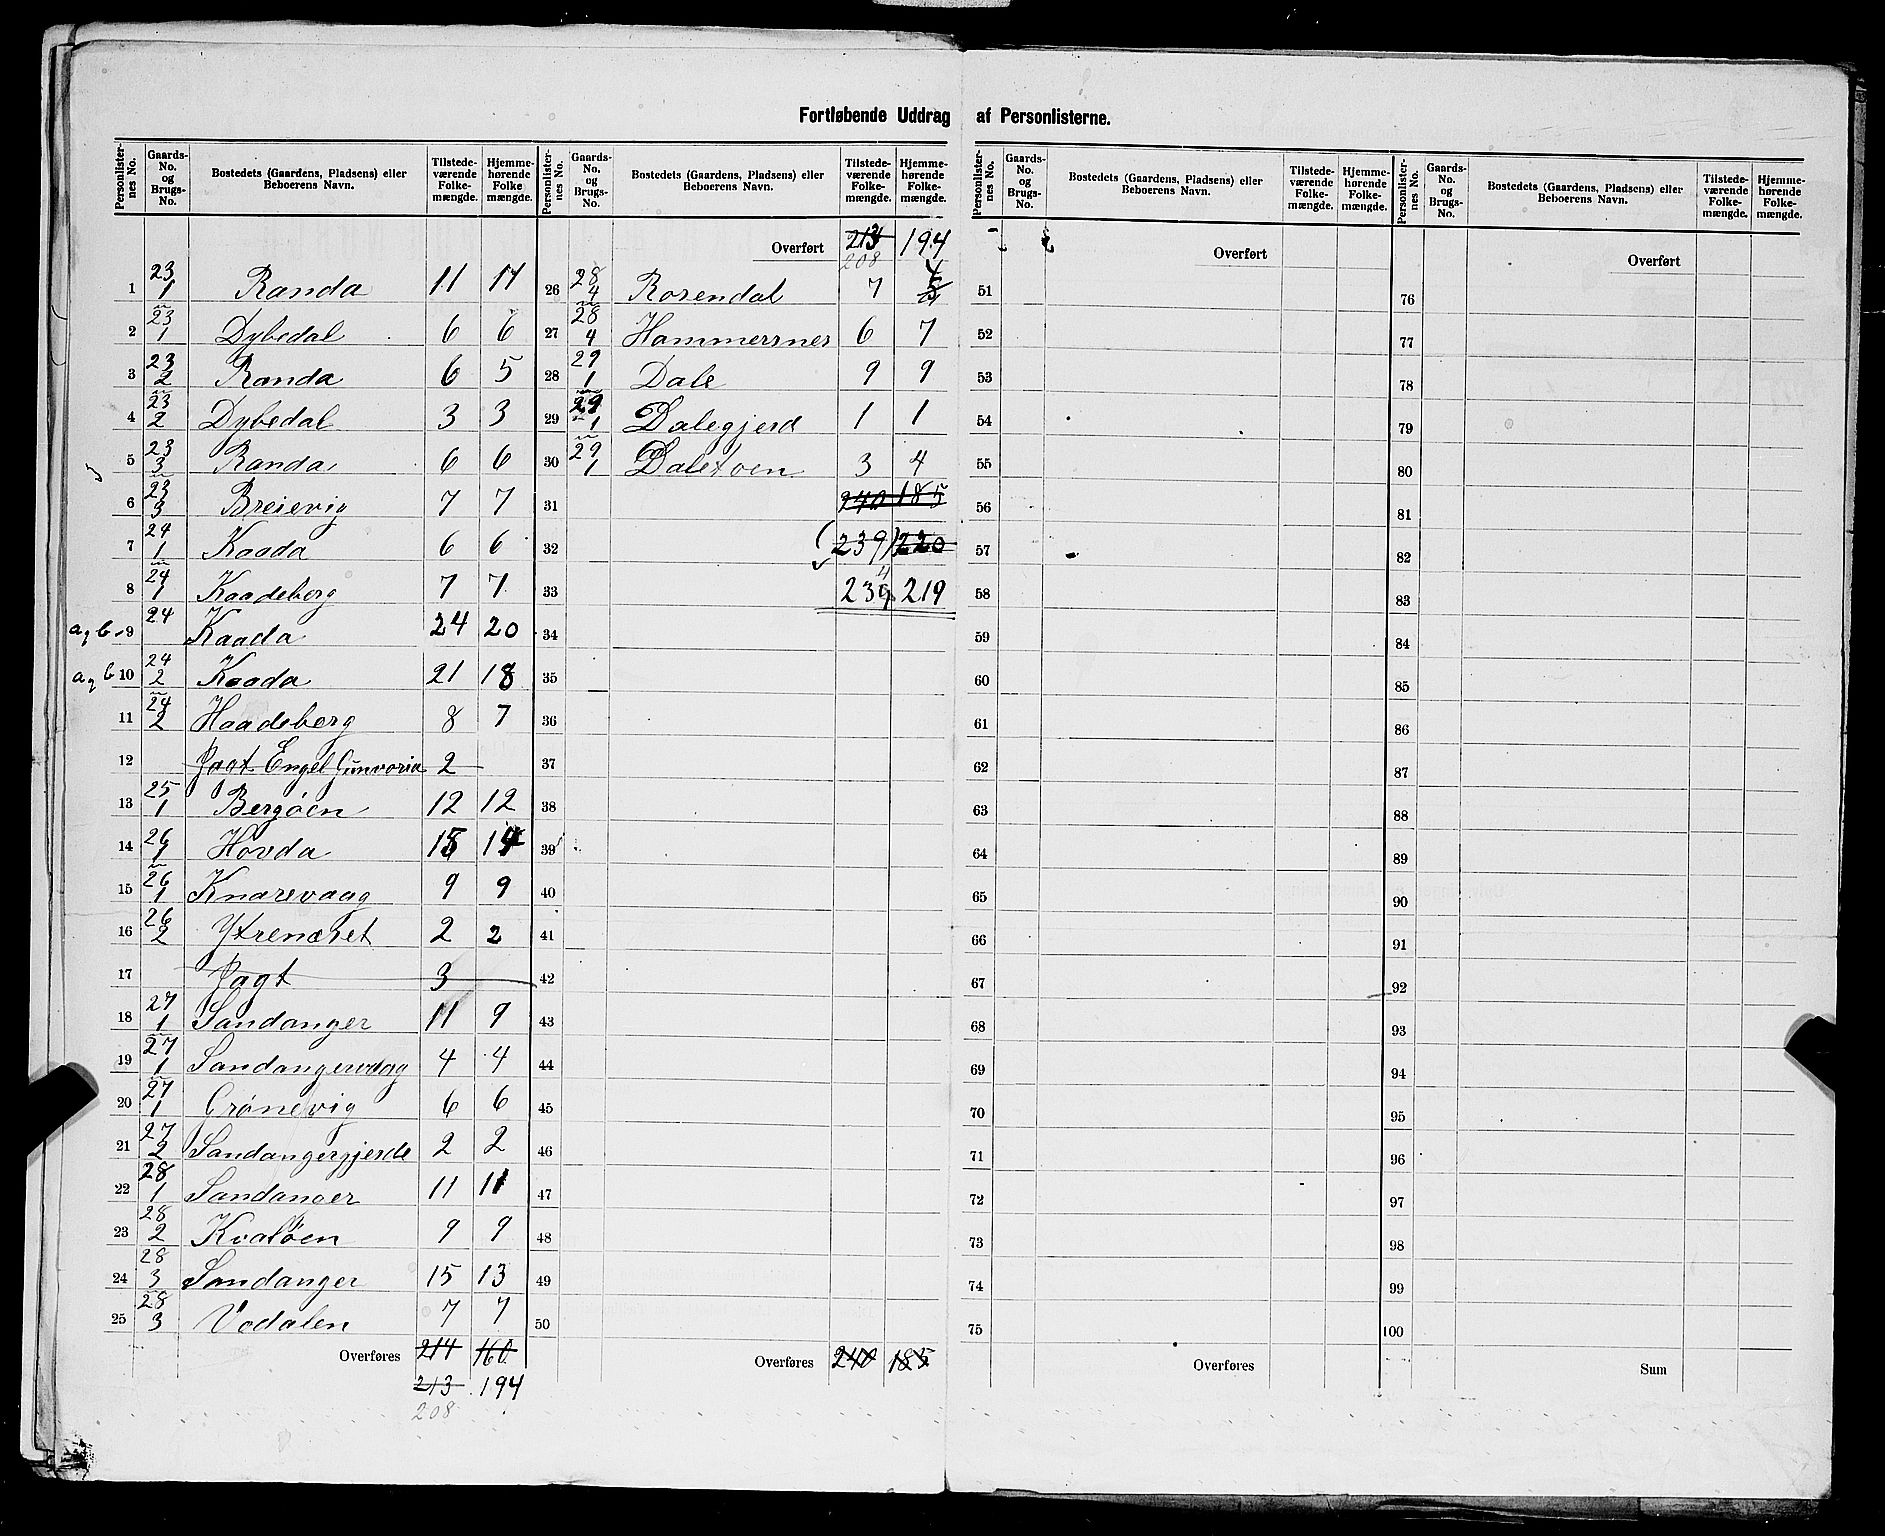 Fortløbende Uddrag af Personlisterne.
Personlister-nes No. | Gaards-No. og Brugs-No. | Bostedets (Gaardens, Pladsens) eller Beboerens Navn. | Tilstede-værende Folke-mængde. | Hjemme-hørende Folke mængde.
1 23/1 Randa 11 11
2 23/1 Dybedal 6 6
3 23/2 Randa 6 5
4 23/2 Dybedal 3 3
5 23/3 Randa 6 6
6 23/3 Breievig 7 7
7 24/1 Kaada 6 6
8 24/1 Kaadeberg 7 7
a, b 9 24 Kaada 24 20
a, b 10 24/2 Kaada 21 18
11 24/2 Haadeberg 8 7
12 Jagt Engel Gunvoria 2
13 25/1 Bergöen 12 12
14 26/1 Hovda 15 14
15 26/1 Knarevaag 9 9
16 26/2 Ytrenæset 2 2
17 Jagt 3
18 27/1 Sandanger 11 9
19 27/1 Sandangervaag 4 4
20 27/1 Grönevig 6 6
21 27/2 Sandangergjerde 2 2
22 28/1 Sandanger 11 11
23 28/2 Kvalöen 9 9
24 28/3 Sandanger 15 13
25 28/3 Vedalen 7 7
Overføres 214 160
213 194
208
Personlister-nes No. | Gaards-No. og Brugs-No. | Bostedets (Gaardens, Pladsens) eller Beboerens Navn. | Tilstede-værende Folke-mængde. | Hjemme-hørende Folke-mængde.
Overført 213 194
208
26 28/4 Rosendal 7 4
27 28/4 Hammersnes 6 7
28 29/1 Dale 9 9
29 29/1 Dalegjerd 1 1
30 29/1 Daletoen 3 4
31 240 185
32 (239) 220
33 239 219
4
34
35
36
37
38
39
40
41
42
43
44
45
46
47
48
49
50
Overføres 240 185
Personlister-nes No. | Gaards-No. og Brugs-No. | Bostedets (Gaardens, Pladsens) eller Beboerens Navn. | Tilstede-værende Folke-mængde. | Hjemme-hørende Folke-mængde.
Overført
51
52
53
54
55
56
57
58
59
60
61
62
63
64
65
66
67
68
69
70
71
72
73
74
75
Overføres
Personlister-nes No. | Gaards-No. og Brugs-No. | Bostedets (Gaardens, Pladsens) eller Beboerens Navn. | Tilstede-værende Folke-mængde. | Hjemme-hørende Folke-mængde.
Overført
76
77
78
79
80
81
82
83
84
85
86
87
88
89
90
91
92
93
94
95
96
97
98
99
100
Sum